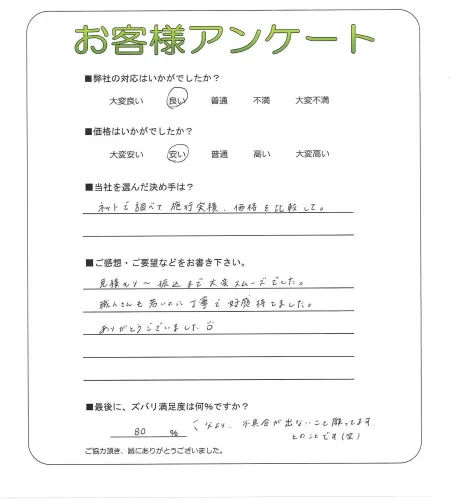 お客様アンケート
■弊社の対応はいかがでしたか？
大変良い 良い 普通 不満 大変不満
■価格はいかがでしたか？
大変安い 安い 普通 高い 大変高い
■当社を選んだ決め手は？
ネットで調べて施行実積、価格を比較して。
■ご感想・ご要望などをお書き下さい。
見積もり～振込まで大変スムーズでした。
職人さんも若いのに丁寧で好感持てました。
ありがとうございました
■最後に、ズバリ満足度は何%ですか？
80 %
なにより、不具合が出ないこと願ってます、
とのことです(笑)
ご協力頂き、誠にありがとうございました。